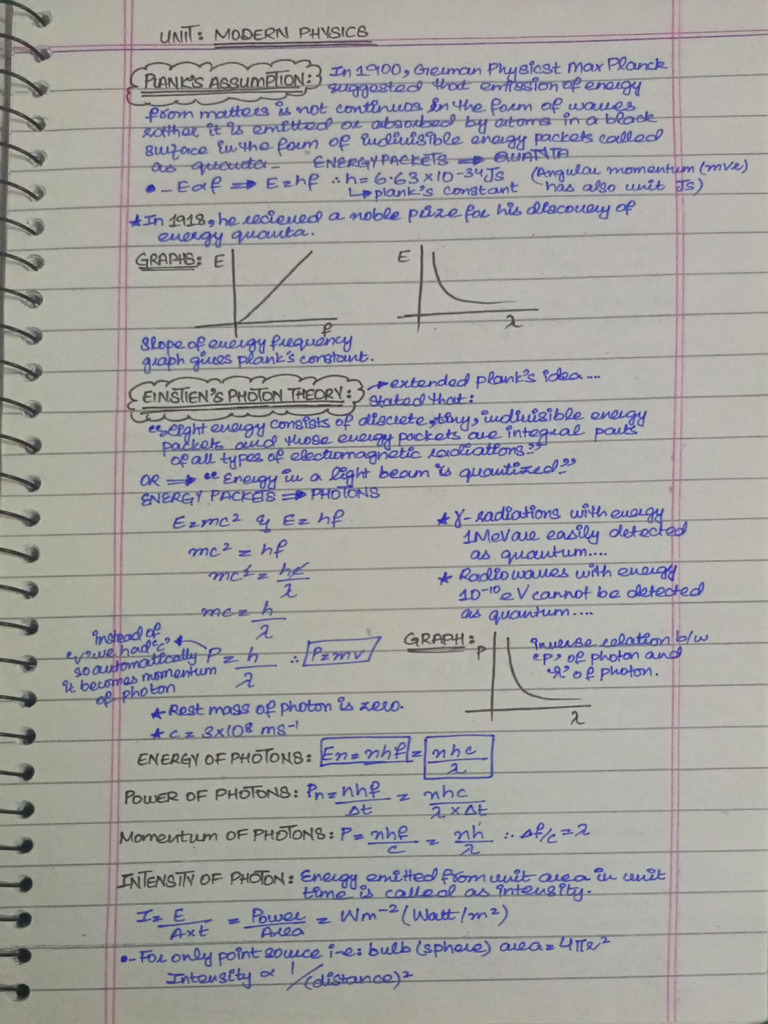 UNIT: MODERN PHYSICS
PLANK'S ASSUMPTION: In 1900, German Physicst Max Planck
suggested that emission of energy
from matters is not continuos in the form of waves
rather it is emitted or absorbed by atoms in a black
surface in the form of indivisible energy packets called
as quanta- ENERGY PACKETS ⇒ QUANTA
•- E∝f ⇒ E=hf ∴h=6.63×10⁻³⁴Js (Angular momentum (mvr)
↳plank's constant has also unit Js)
★In 1918, he recieved a noble prize for his discovery of
energy quanta.
GRAPHS: E
f
E
λ
Slope of energy frequency
graph gives plank's constant.
EINSTIEN'S PHOTON THEORY: →extended plank's idea...
stated that:
“Light energy consists of discrete, tiny, indivisible energy
packets and those energy packets are integral parts
of all types of electromagnetic radiations”
OR ⇒ “Energy in a light beam is quantized”
ENERGY PACKETS ⇒ PHOTONS
E=mc² & E=hf
mc²=hf
mc²=hc/λ
mc=h/λ
instead of
“v” we had “c”
so automatically
it becomes momentum
of photon
P=h/λ ∴ P=mv
★ γ-radiations with energy
1MeV are easily detected
as quantum....
★ Radiowaves with energy
10⁻¹⁰eV cannot be detected
as quantum....
GRAPH: P
λ
Inverse relation b/w
“P” of photon and
“λ” of photon.
★Rest mass of photon is zero.
★c=3×10⁸ ms⁻¹
ENERGY OF PHOTONS: En=nhf = nhc/λ
POWER OF PHOTONS: Pn=nhf/Δt = nhc/λ×Δt
Momentum OF PHOTONS: P=nhf/c = nh/λ ∴ Δf/c=λ
INTENSITY OF PHOTON: Energy emitted from unit area in unit
time is called as intensity.
I=E/A×t = Power/Area = Wm⁻² (Watt/m²)
•-For only point source i-e: bulb (sphere) area=4πr²
Intensity ∝ 1/(distance)²